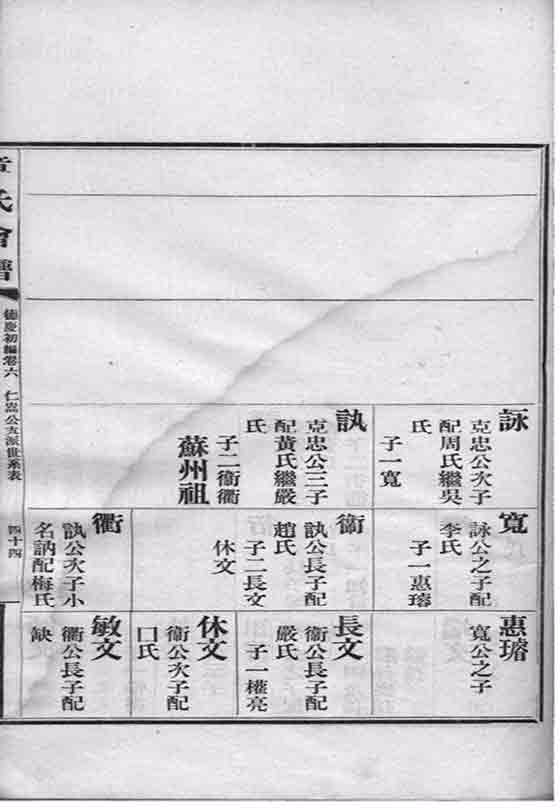 詠
克忠公次子
配周氏繼吳
氏
子一寬
訙
克忠公三子
配黃氏繼嚴
氏
子二衞衢
蘇州祖
寬
詠公之子配
李氏
子一惠璿
衞
訙公長子配
趙氏
子二長文
休文
衢
訙公次子小
名訥配梅氏
惠璿
寬公之子
長文
衞公長子配
嚴氏
子一權亮
休文
衞公次子配
口氏
敏文
衢公長子配
缺
氏會譜
德慶初編卷六 仁嵩公支派世系表
四十四